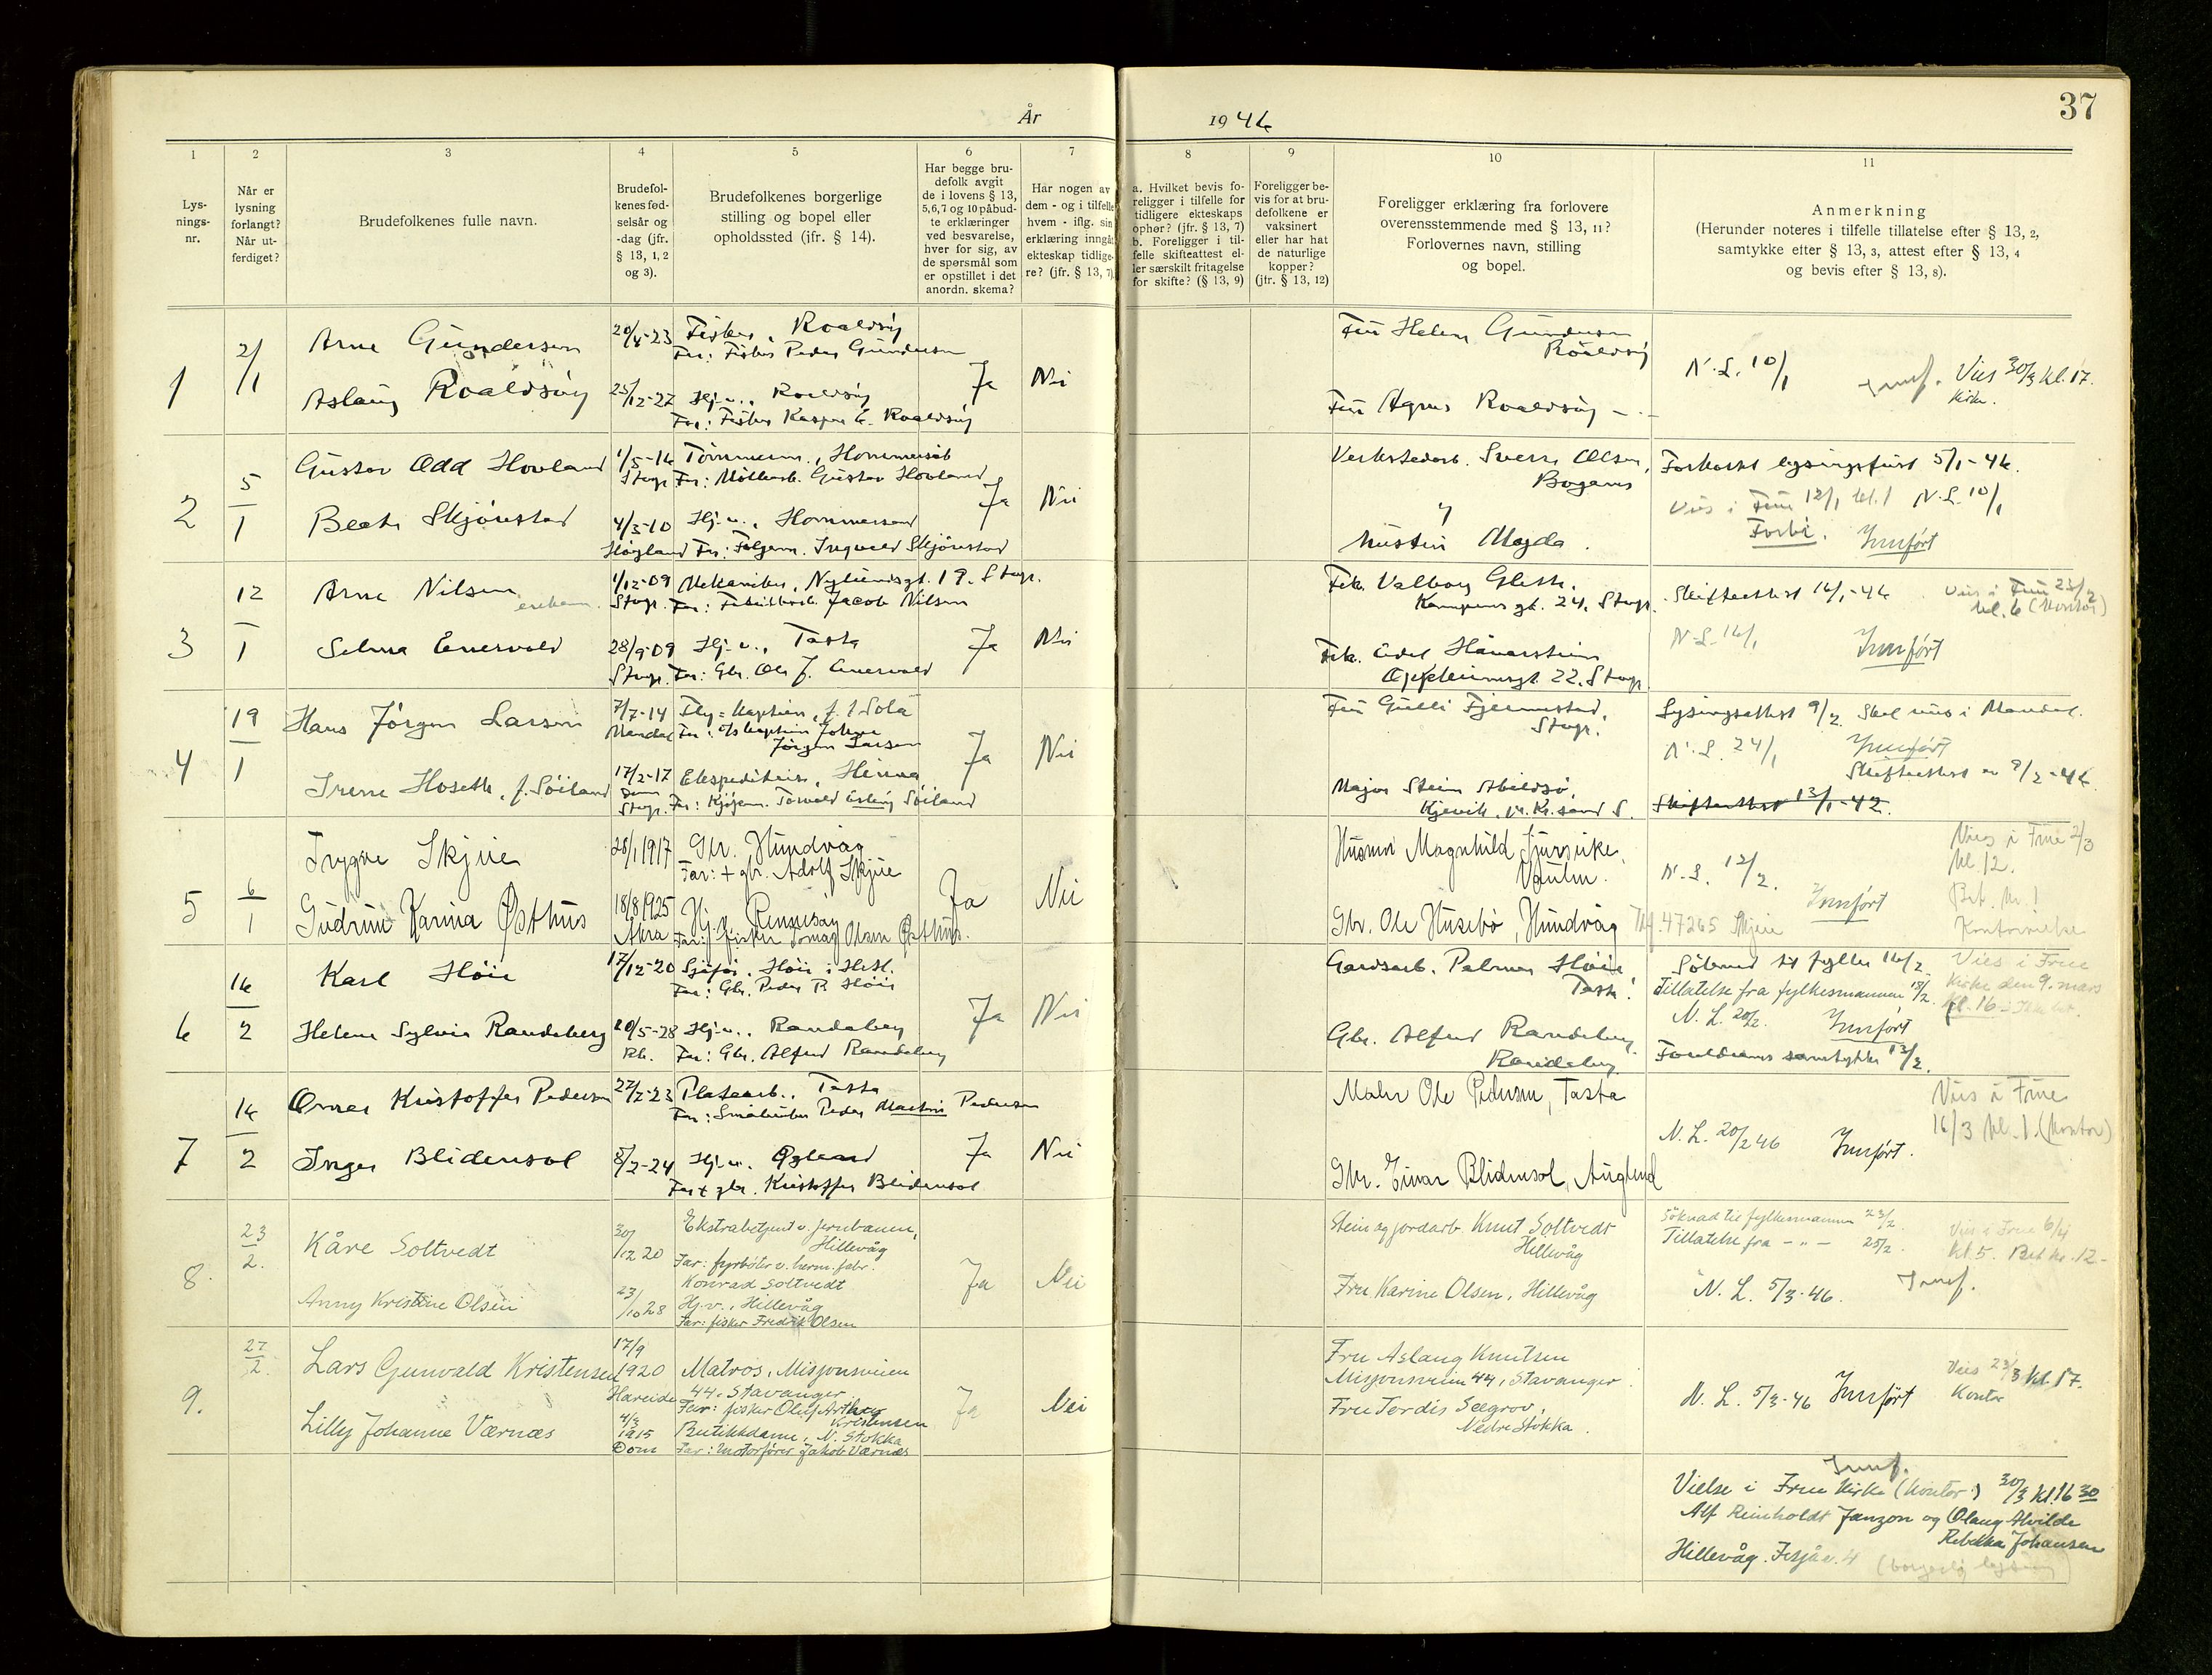 37
År 1946
1
Lys-
nings-
nr.
2
Når er
lysning
forlangt?
Når ut-
ferdiget?
3
Brudefolkenes fulle navn.
4
Brudefol-
kenes fød-
selsår og
-dag (jfr.
§ 13, 1, 2
og 3).
5
Brudefolkenes borgerlige
stilling og bopel eller
opholdssted (jfr. § 14).
6
Har begge bru-
defolk avgit
de i lovens § 13,
5, 6, 7 og 10 påbud-
te erklæringer
ved besvarelse,
hver for sig, av
de spørsmål som
er opstillet i det
anordn. skema?
7
Har nogen av
dem - og i tilfelle
hvem - iflg. sin
erklæring inngåt
ekteskap tidlige-
re? (jfr. § 13, 7)
8
a. Hvilket bevis fo-
religger i tilfelle for
tidligere ekteskaps
ophør? (jfr. § 13, 7)
b. Foreligger i til-
felle skifteattest el-
ler særskilt fritagelse
for skifte? (§ 13, 9)
9
Foreligger be-
vis for at bru-
defolkene er
vaksinert
eller har hat
de naturlige
kopper?
(jfr. § 13, 12)
10
Foreligger erklæring fra forlovere
overensstemmende med § 13, 11?
Forlovernes navn, stilling
og bopel.
11
Anmerkning
(Herunder noteres i tilfelle tillatelse efter § 13, 2,
samtykke efter § 13, 3, attest efter § 13, 4
og bevis efter § 13, 8).
1
2/1
Arne Gundersen
20/4-23
Fisker, Roaldsøy
Far: Fisker Peder Gundersen
Aslaug Roaldsøy
25/12-27
Hj.v., Roaldsøy
Far: Fisker Kasper E. Roaldsøy
Ja
Nei
Fru Helen Gundersen
Roaldsøy
Fru Agnes Roaldsøy
N.L. 10/1
Innf. Vies 30/3 kl. 17.
Kirke.
2
5/1
Gustav Odd Hovland
1/5-16
Stvgr.
Tømmerm., Hommersåk
Far: Møllearb. Gustav Hovland
Beate Skjørestad
4/3-10
Høgland
Hj.v., Hommersand
Far: Skjørestad
Ja
Nei
Verkstedarb. Sverre Olsen,
Bogens
y
hustru Magda.
Forkortet lysingsfrist 5/1-46.
Vies i Frue 12/1 kl. 1 N.L. 10/1
Forbi. Innført
3
12/1
Arne Nilsen
1/12-09
Stvgr.
Mekaniker, Nylundsgt. 19. Stvgr.
Far: Fabrikkarb. Jacob Nilsen
Selma Enersvold
28/9-09
Stvgr.
Hj.v., Tasta
Far: Gbr. Ole J. Enersvold
Ja
Nei
Frk. Valborg
Kampens gt. 24, Stvgr.
Frk.
22, Stvgr.
Skifteattest 16/1-46
Vies i Frue 23/2
kl. 6 (Kontor)
N.L. 16/1
Innført
4
19/1
Hans Jørgen Larsen
7/7-14
Mandal
Fly-kaptein, f. t. Sola
Far: Johan
Jørgen Larsen
Irene Hoseth, f. Söiland
17/2-17
Stvgr.
Ekspeditrise, Hinna
Far: Kjøpm. Torvald Erling Söiland
Ja
Nei
Fru Gulli Fjermestad,
Stvgr.
Major Stein Abildsø,
Kjevik, pr. Kr.sand S.
Lysingsattest 9/2. Skal vies i Mandal.
N.L. 24/1 Innført
Skifteattest 9/2-46
Skifteattest 13/1-42.
5
6/1
Trygve Skjuie
28/1 1917
Gbr. Hundvåg
Far: + gbr. Adolf Skjuie
Gudrun Karina Østhus
18/8 1925
Åkra
Hj.v. Rennesøy
Far: fisker Tomas Olsen Østhus.
Ja
Nei
Husmor Magnhild Tjursike,
Vaulen.
Gbr. Ole Husebø, Hundvåg
Tlf. 47265
N.L. 12/2.
Innført
Vies i Frue 2/3
kl 12.
Bet. kr. !
Kontorvielse
6
16/2
Karl Høie
17/12-20
Sjåfør. Høie i Hetl.
Far: Gbr. Peder R Høie
Helene Sylvia Randeberg
20/5-28
Rb.
Hj.v., Randaberg
Far: Gbr. Alfred Randeberg
Ja
Nei
Gardsarb. Palmer Høie,
Tasta.
Gbr. Alfred Randeberg.
Randeberg
Søknad til fylket 16/2
Tillatelse fra fylkesmannen 18/2.
N.L. 20/2. Innført
Foreldrenes samtykke 13/2.
Vies i Frue
kirke den 9. mars
kl. 16
7
16/2
Omar Kristoffer Pedersen
27/2-23
Platearb., Tasta
Far: Småbruker Peder Martin Pedersen
Inger Blidensol
8/2-24
Hj.v. Ogland
Far + gbr. Kristoffer Blidensol
Ja
Nei
Maler Ole Pedersen, Tasta
Gbr. Einar Blidensol, Auglend
N.L. 20/2 46 Innført.
Vies i Frue
16/3 kl. 1. (Kontor)
8
23/2.
Kåre Soltvedt
30/12 20
Ekstrabetjent v. jernbanen,
Hillevåg
Far: fyrbøter v. herm. fabr.
Konrad Soltvedt
Anny Kristine Olsen
23/10 28
Hj.v., Hillevåg
Far: fisker Fredrik Olsen
Ja
Nei
Stein og jordarb. Knut Soltvedt
Hillevåg
Fru Karine Olsen, Hillevåg
Søknad til fylkesmannen 23/2.
Tillatelse fra - " - 25/2.
Vies i Frue 6/4
kl. 5. Bet kr. 12-
N.L. 5/3-46. Innf.
9.
27/2.
Lars Gunvald Kristensen
17/9
1920
Hareide
Matros, Misjonsveien
44, Stavanger.
Far: fisker Oluf Arthur
Kristensen
Lilly Johanne Værnæs
4/3
1915
Butikkdame, N. Stokka
Far: Motorfører Jakob Værnæs
Ja
Nei
Fru Aslaug Knutsen
Misjonsveien 44, Stavanger.
Fru Tordis Seegrov,
Nedre Stokka.
N.L. 5/3-46 Innført
Vies 23/3 kl. 17.
Kontor
Innf.
Vielse i Frue kirke (kontor) 30/3 kl. 16 30
Alf Reinholdt Janzon og Olaug Alvilde
Rebekka Johansen
Hillevåg. 4
(borgerlig lysning)